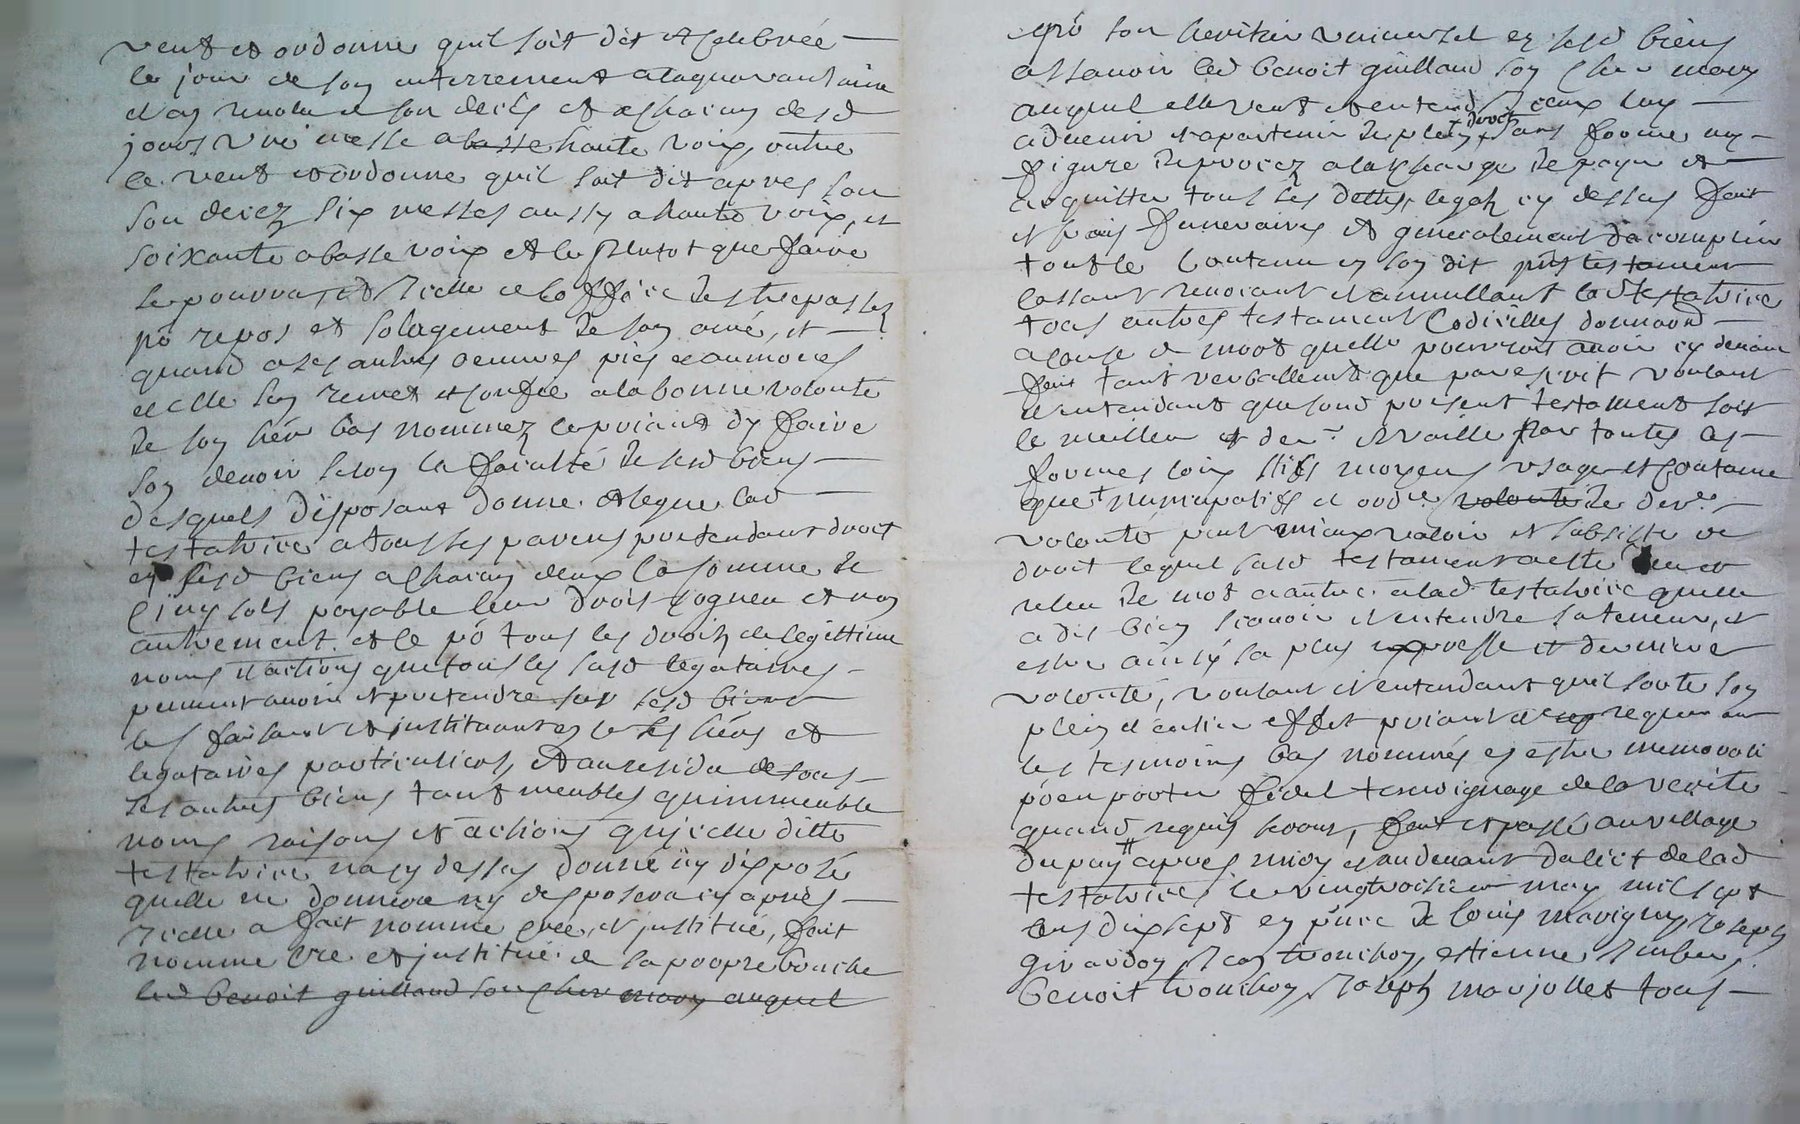 veut et ordonne quil soit dit et celebrée
le jour de son enterrement a la quarantaine
et au revolu de son deces et a chacun desd
jours une messe a basse haute voix, outre
ce veut et ordonne quil soit dit apres son
son decez six messes aussy a haute voix, et
soixante a basse voix et le plutot que faire
se pourra, et icelle a l'office des trepassez
pō repos et solagement de son ame, et
quand a ses autres oeuvres pies et aumones
elle sen remet et confie a la bonne volonté
de son hér bas nommez le priant dy faire
son devoir selon la faculté de sesd biens
desquels disposant donne et legue lad
testatrice a tous ses parens pretendant droit
en sesd biens a chacun deux la somme de
cinq sols payable leur droit cogneu et non
autrement et ce pō tous les droitz de legittime
noms et actions que tous les susd legataires
peuvent avoir et pretendre sur sesd biens
les faisant et instituant en ce ses hérs et
legataires particuliers, et au residu de tous
ses autres biens tant meubles quimmeuble
noms raisons et actions quicelle ditte
testatrice na cy dessus donné ny disposé
quelle ne donnera ny desposera cy apres
icelle a fait nommé creé, et institué, fait
nomme cre et institue de sa propre bouche
led benoit guilland son cher mary auquel
pō son heritier universel en sesd biens
assavoir led benoit guilland son cher mary
auquel elle veut et entend iceux luy
advenir et apartenir de plein droit sans forme ny
figure de procez a la charge de payer et
acquitter tous ses dettes, legatz cy dessus fait
et frais funeraires et generalement dacomplir
tout le contenu en son dit pnt testament
cassant revocant et annullant lad testatrice
tous autres testament codicilles donnaōn
a cause de mort quelle pourroit avoir cy devant
fait tant verballemt que par escrit voulant
et entendant que sond present testament soit
le meilleur et der. et vaille par toutes les
formes loix stils moyens usage et coutume
que nuncupatifs et ordre volonté de dere
volonté peut mieux valoir et subsister de
droit lequel susd testament a esté leu et
releu de mot a autre a lad testatrice quelle
a dit bien scavoir et entendre sa teneur, et
estre ainsy sa plus expresse et derniere
volonté, voulant et entendant quil sorte son
plein et entier effet priant et req requerant
les tesmoins bas nommés en estre memoratif
pō en porter fidel tesmoignage de la verité
quand requis seront, fait et passé au village
du puy apres midy et au devant du lict de lad
testatrice le vingtroisieme may mil sept
cens dixsept en pnce de louis marigny, joseph
girardon, jean tronchon, estienne imbert,
benoit tronchon, joseph marjollet tous